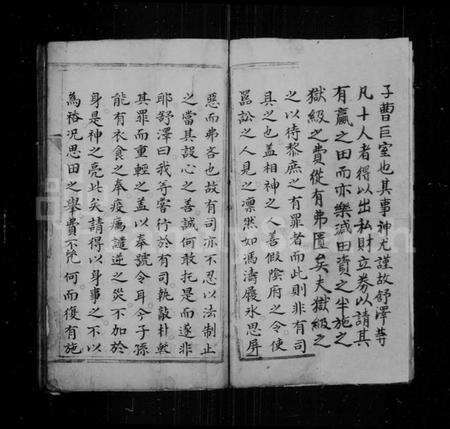 子曹巨室也其事神尤謹故舒澤等
凡十人者得以出私財立券以請其
有贏之田而亦樂減田資之半施之
獄級之費從有弗匱矣夫獄級之
之以待黎庶之有罪者而此則非有司
具之也盖相神之人善假陰府之令使
嚚訟之人見之凛然如馮濤履氷思屏
惡而弗吝也故有司亦不忍以法制止
之當其設心之善誠何敢托是而遂非
耶舒澤曰我等害行於有司執敲扑黥
其罪而重輕之盖以奉號令耳今子孫
能有衣食之奉疫癘譴逆之災不加於
身是神之亮此矣請得以身事之不以
為裕况思田之舉費不咒何而復有施